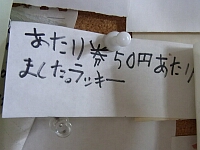 あたり券50円あたり
ました。ラッキー